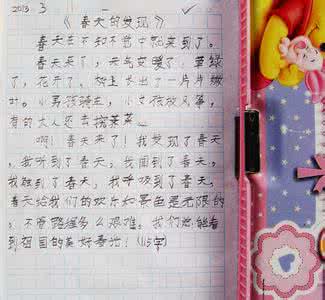 2013.3
《春天的发现》
春天在不知不觉中就来到了。
春天来了，天气变暖了，草绿
了，花开了，树上长出了一片片嫩
叶。小男孩骑车，小女孩放风筝，
有的大人还去挖荠菜。
啊！春天来了！我发现了春天
，我听到了春天，我闻到了春天，
我触到了春天，我呼吸到了春天，
春天给我们的欢乐和景色是无限的
，不管路程多么艰难，我们总能看
到祖国的美好春光！(115字)